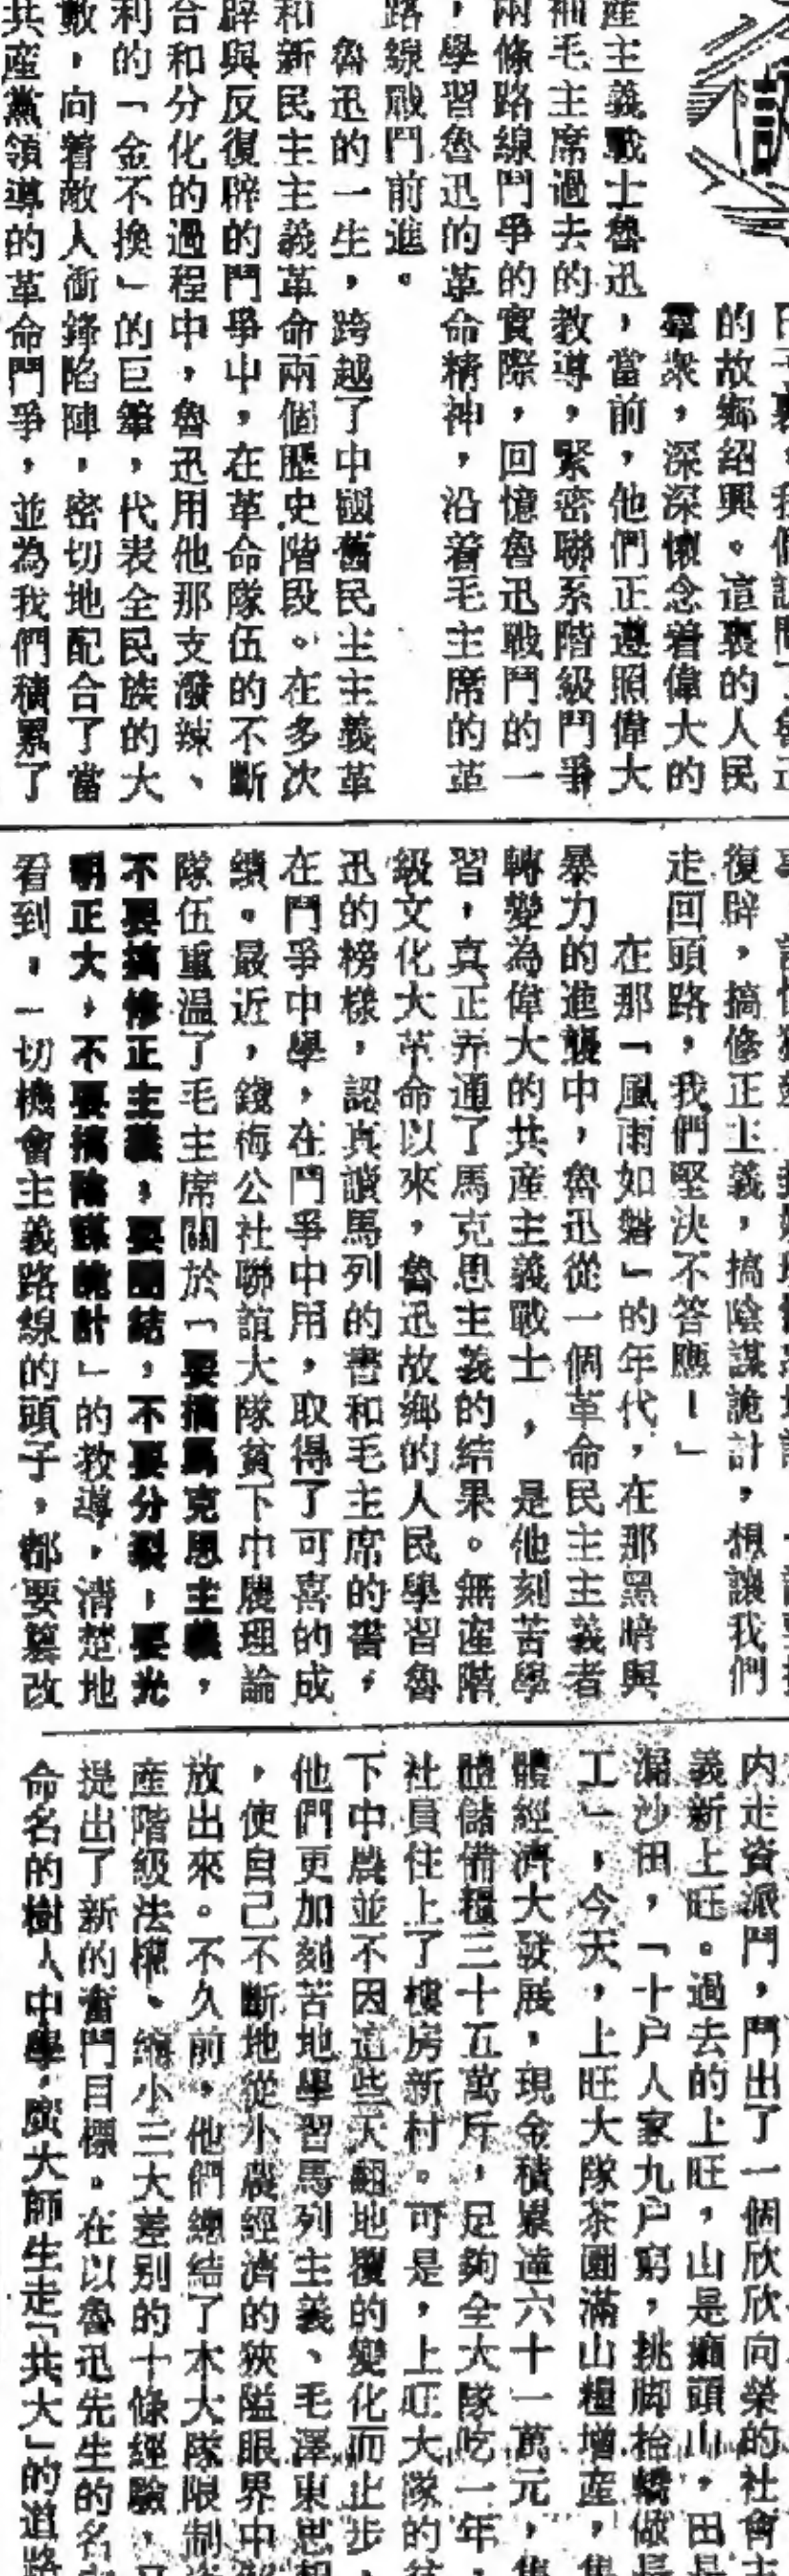 的故鄉紹興。這裏的人民
羣衆,深深懷念着偉大的
產主義戰士魯迅,當前,他們正遵照偉大
袖毛主席過去的教導,緊密聯系階級鬥爭
兩條路線鬥爭的實際,回憶魯迅戰鬥的一
,學習魯迅的革命精神,沿着毛主席的革
路線戰鬥前進。
魯迅的一生,跨越了中國舊民主主義革
和新民主主義革命兩個歷史階段。在多次
辟與反復辟的鬥爭中,在革命隊伍的不斷
合和分化的過程中,魯迅用他那支潑辣、
利的「金不換」的巨筆,代表全民族的大
數,向着敵人衝鋒陷陣,密切地配合了當
共產黨領導的革命鬥爭,並為我們積累了
復辟,搞修正主義,搞陰謀詭計,想讓我們
走回頭路,我們堅決不答應!」
在那「風雨如磐」的年代,在那黑暗與
暴力的進襲中,魯迅從一個革命民主主義者
轉變為偉大的共產主義戰士,是他刻苦學
習,真正弄通了馬克思主義的結果。無產階
級文化大革命以來,魯迅故鄉的人民學習魯
迅的榜樣,認真讀馬列的書和毛主席的書,
在鬥爭中學,在鬥爭中用,取得了可喜的成
績。最近,錢梅公社聯誼大隊貧下中農理論
隊伍重溫了毛主席關於「要搞馬克思主義,
不要搞修正主義,要團結,不要分裂,要光
明正大,不要搞陰謀詭計」的教導,清楚地
看到,一切機會主義路線的頭子,都要篡改
內走資派鬥,鬥出了一個欣欣向榮的社會主
義新上旺。過去的上旺,山是癩頭山,田是
漏沙田,「十户人家九户窮,挑脚抬轎做長
工」,今天,上旺大隊茶園滿山糧增產,集
體經濟大發展,現金積累達六十一萬元,集
體儲備糧三十五萬斤,足夠全大隊吃一年,
社員住上了樓房新村。可是,上旺大隊的貧
下中農並不因這些天翻地覆的變化而止步,
他們更加刻苦地學習馬列主義、毛澤東思想
,使自己不斷地從小農經濟的狹隘眼界中解
放出來。不久前,他們總結了本大隊限制資
產階級法權、縮小三大差别的十條經驗,又
提出了新的奮鬥目標。在以魯迅先生的名字
命名的樹人中學,廣大師生走「共大」的道路